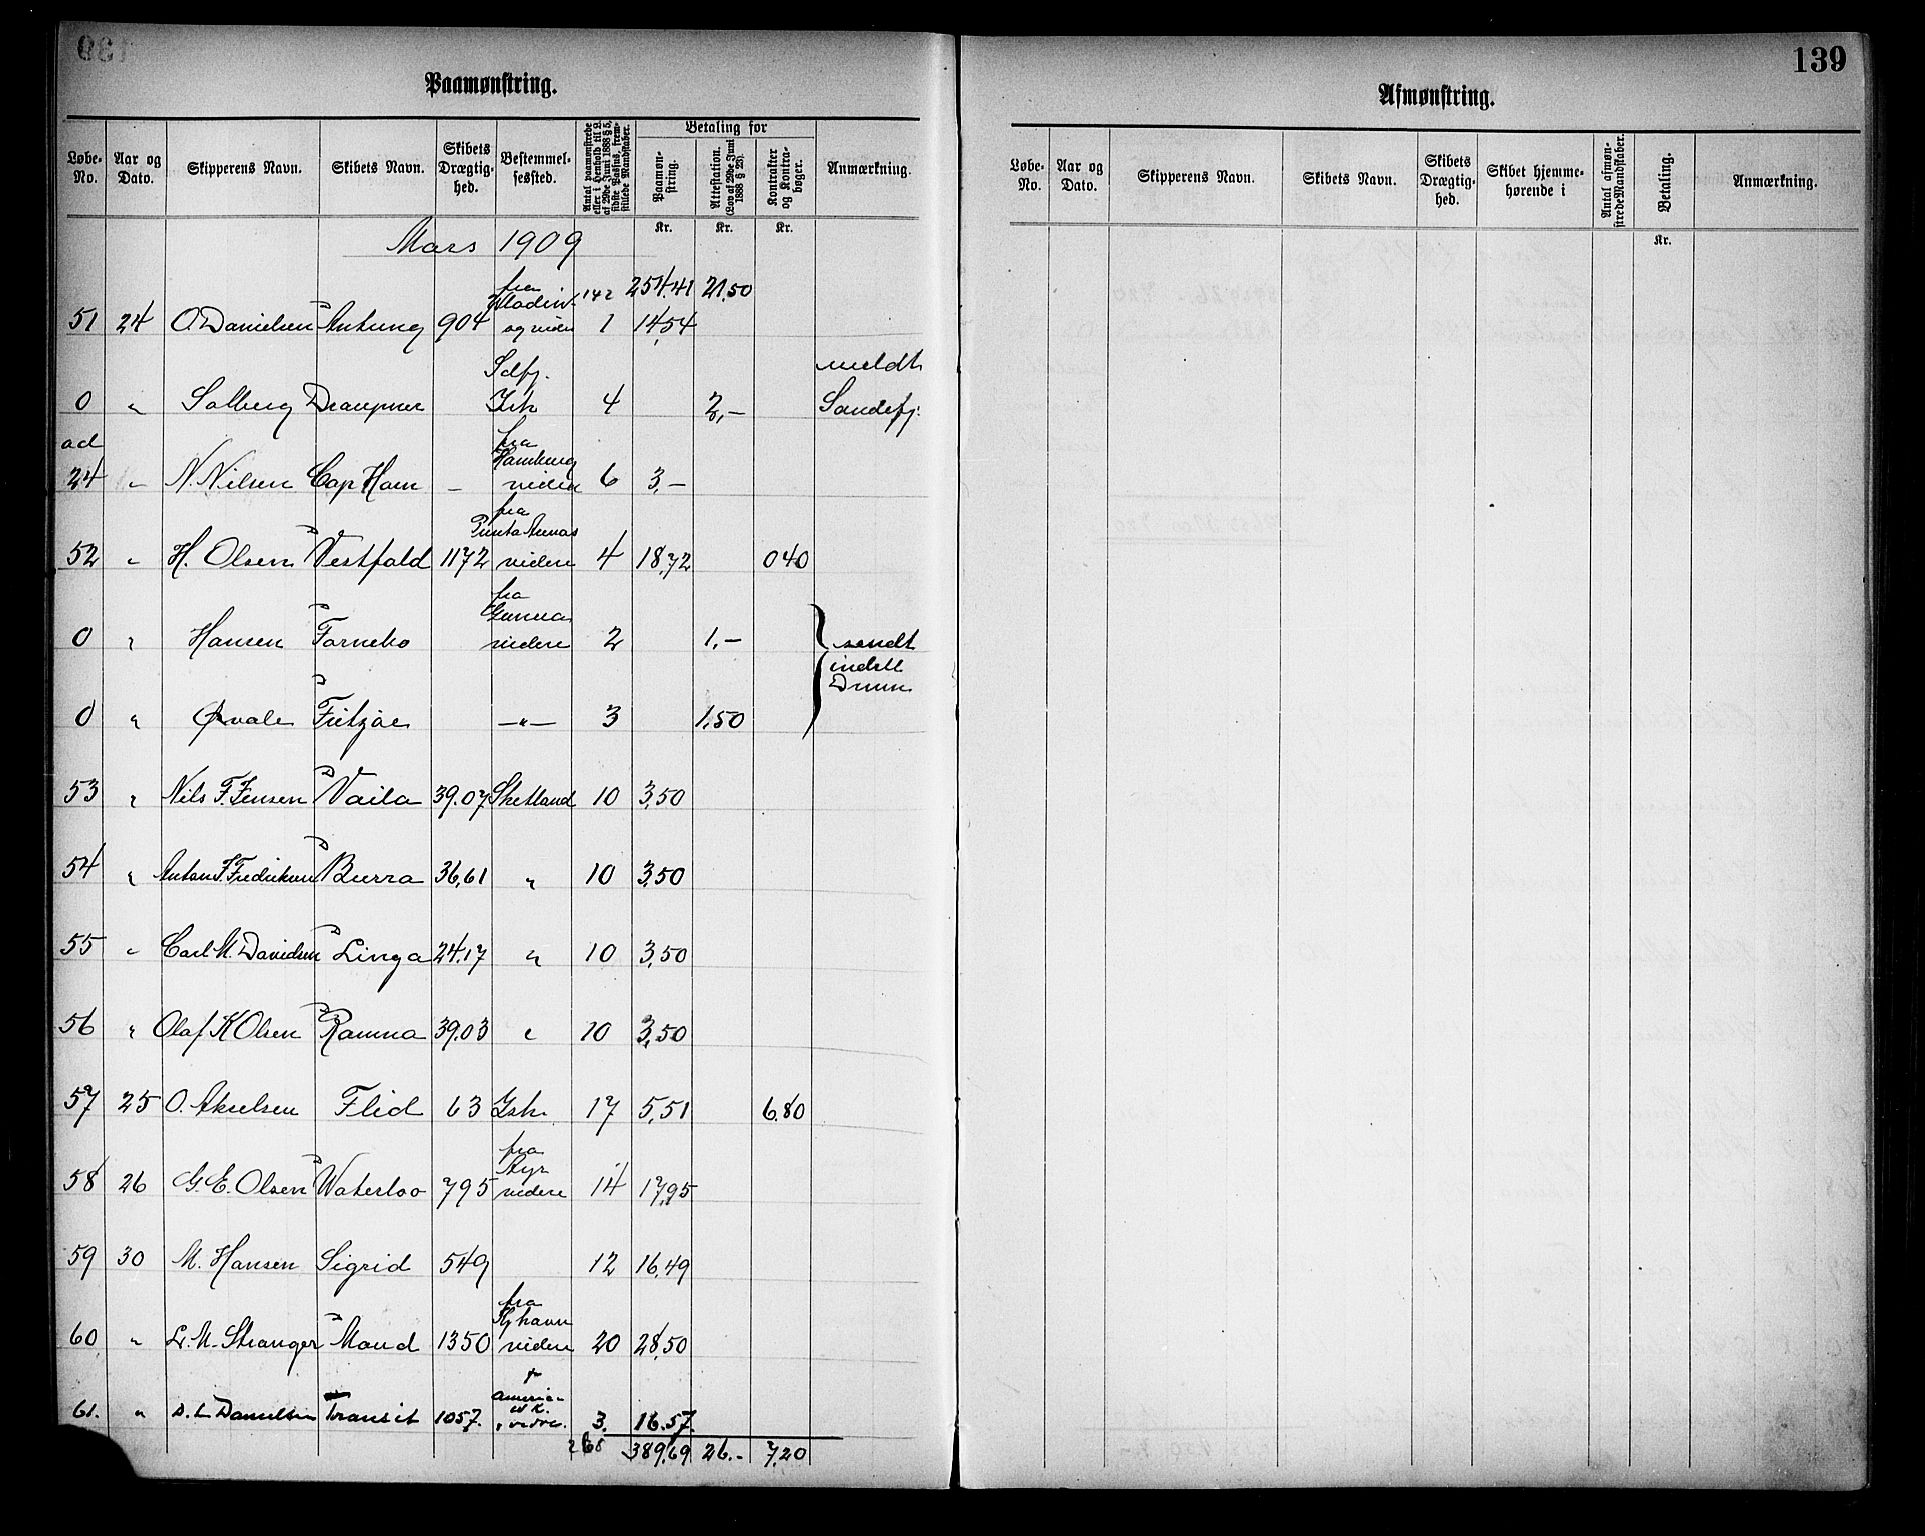 139
Paamønstring.
Løbe-No. | Aar og Dato. | Skipperens Navn. | Skibets Navn. | Skibets Drægtig-hed. | Bestemmel-sessted. | Antal paamønstrede eller i Henhold til L. af 29de Juni 1888 § 5, sidste Passus, frem-stillede Mandskaber. | Betaling for | Paamøn-string. | Attestation. (Lov af 29de Juni 1888 § 23). | Kontrakter og Kontra-bøger. | Anmærkning.
Kr. Kr. Kr.
Mars 1909
142 254.41 21,50
51 24 O Danielsen Antung 904 fra og videre 1 14,54
0 " Solberg Draupner Sdfj. Ish 4 2,- meldt Sandefj.
ad 24 " N. Nilsen Cap Horn - fra Hamburg videre 6 3,-
52 " H. Olsen Vestfold 1172 fra Punta Arenas videre 4 18,72 040
0 " Hansen Fornebo fra Genua videre 2 1,- sendt indstll Drmn
0 " Ørvale Fritzöe -"- 3 1,50
53 " Nils F. Jensen Vaila 39.07 Shetland 10 3,50
54 " Anton F. Fredriksen Burra 36,61 " 10 3,50
55 " Carl M. Davidsen Linga 24.17 " 10 3,50
56 " Olaf K Olsen Ramna 39.03 " 10 3,50
57 25 O. Akselsen Flid 63 Ish. 17 5,51 6.80
58 26 G. E. Olsen Waterloo 795 fra Ayr videre 14 17,95
59 30 M. Hansen Sigrid 549 12 16,49
60 " L. M. Stranger Maud 1350 fra Kjhavn videre 20 28,50
61. " D. L. Danielsen Transit 1057. f America videre. 3. 16.57.
268 389,69 26.- 7,20
139
Afmønstring.
Løbe-No. | Aar og Dato. | Skipperens Navn. | Skibets Navn. | Skibets Drægtig-hed. | Skibet hjemme-hørende i | Antal afmøn-strede Mandskaber. | Betaling. | Anmærkning.
Kr.